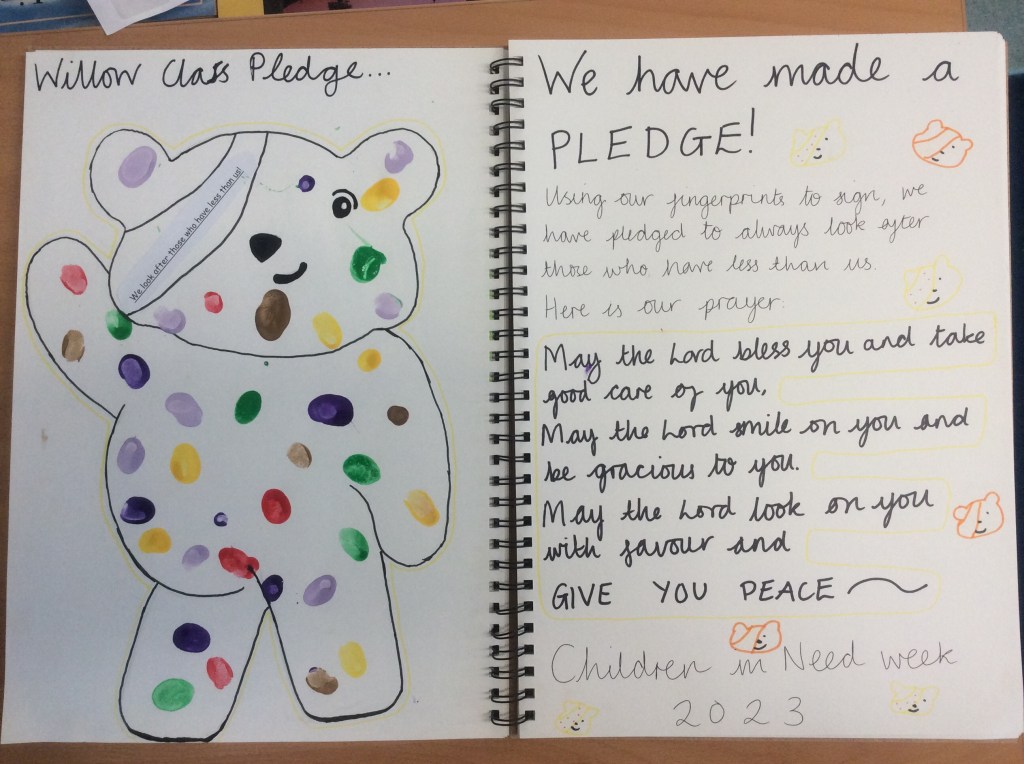 Willow Class Pledge...
We look after those who have less than us!
We have made a
PLEDGE!
Using our fingerprints to sign, we
have pledged to always look after
those who have less than us.
Here is our prayer:
May the Lord bless you and take
good care of you,
May the Lord smile on you and
be gracious to you.
May the Lord look on you
with favour and
GIVE YOU PEACE
Children in Need week
2023